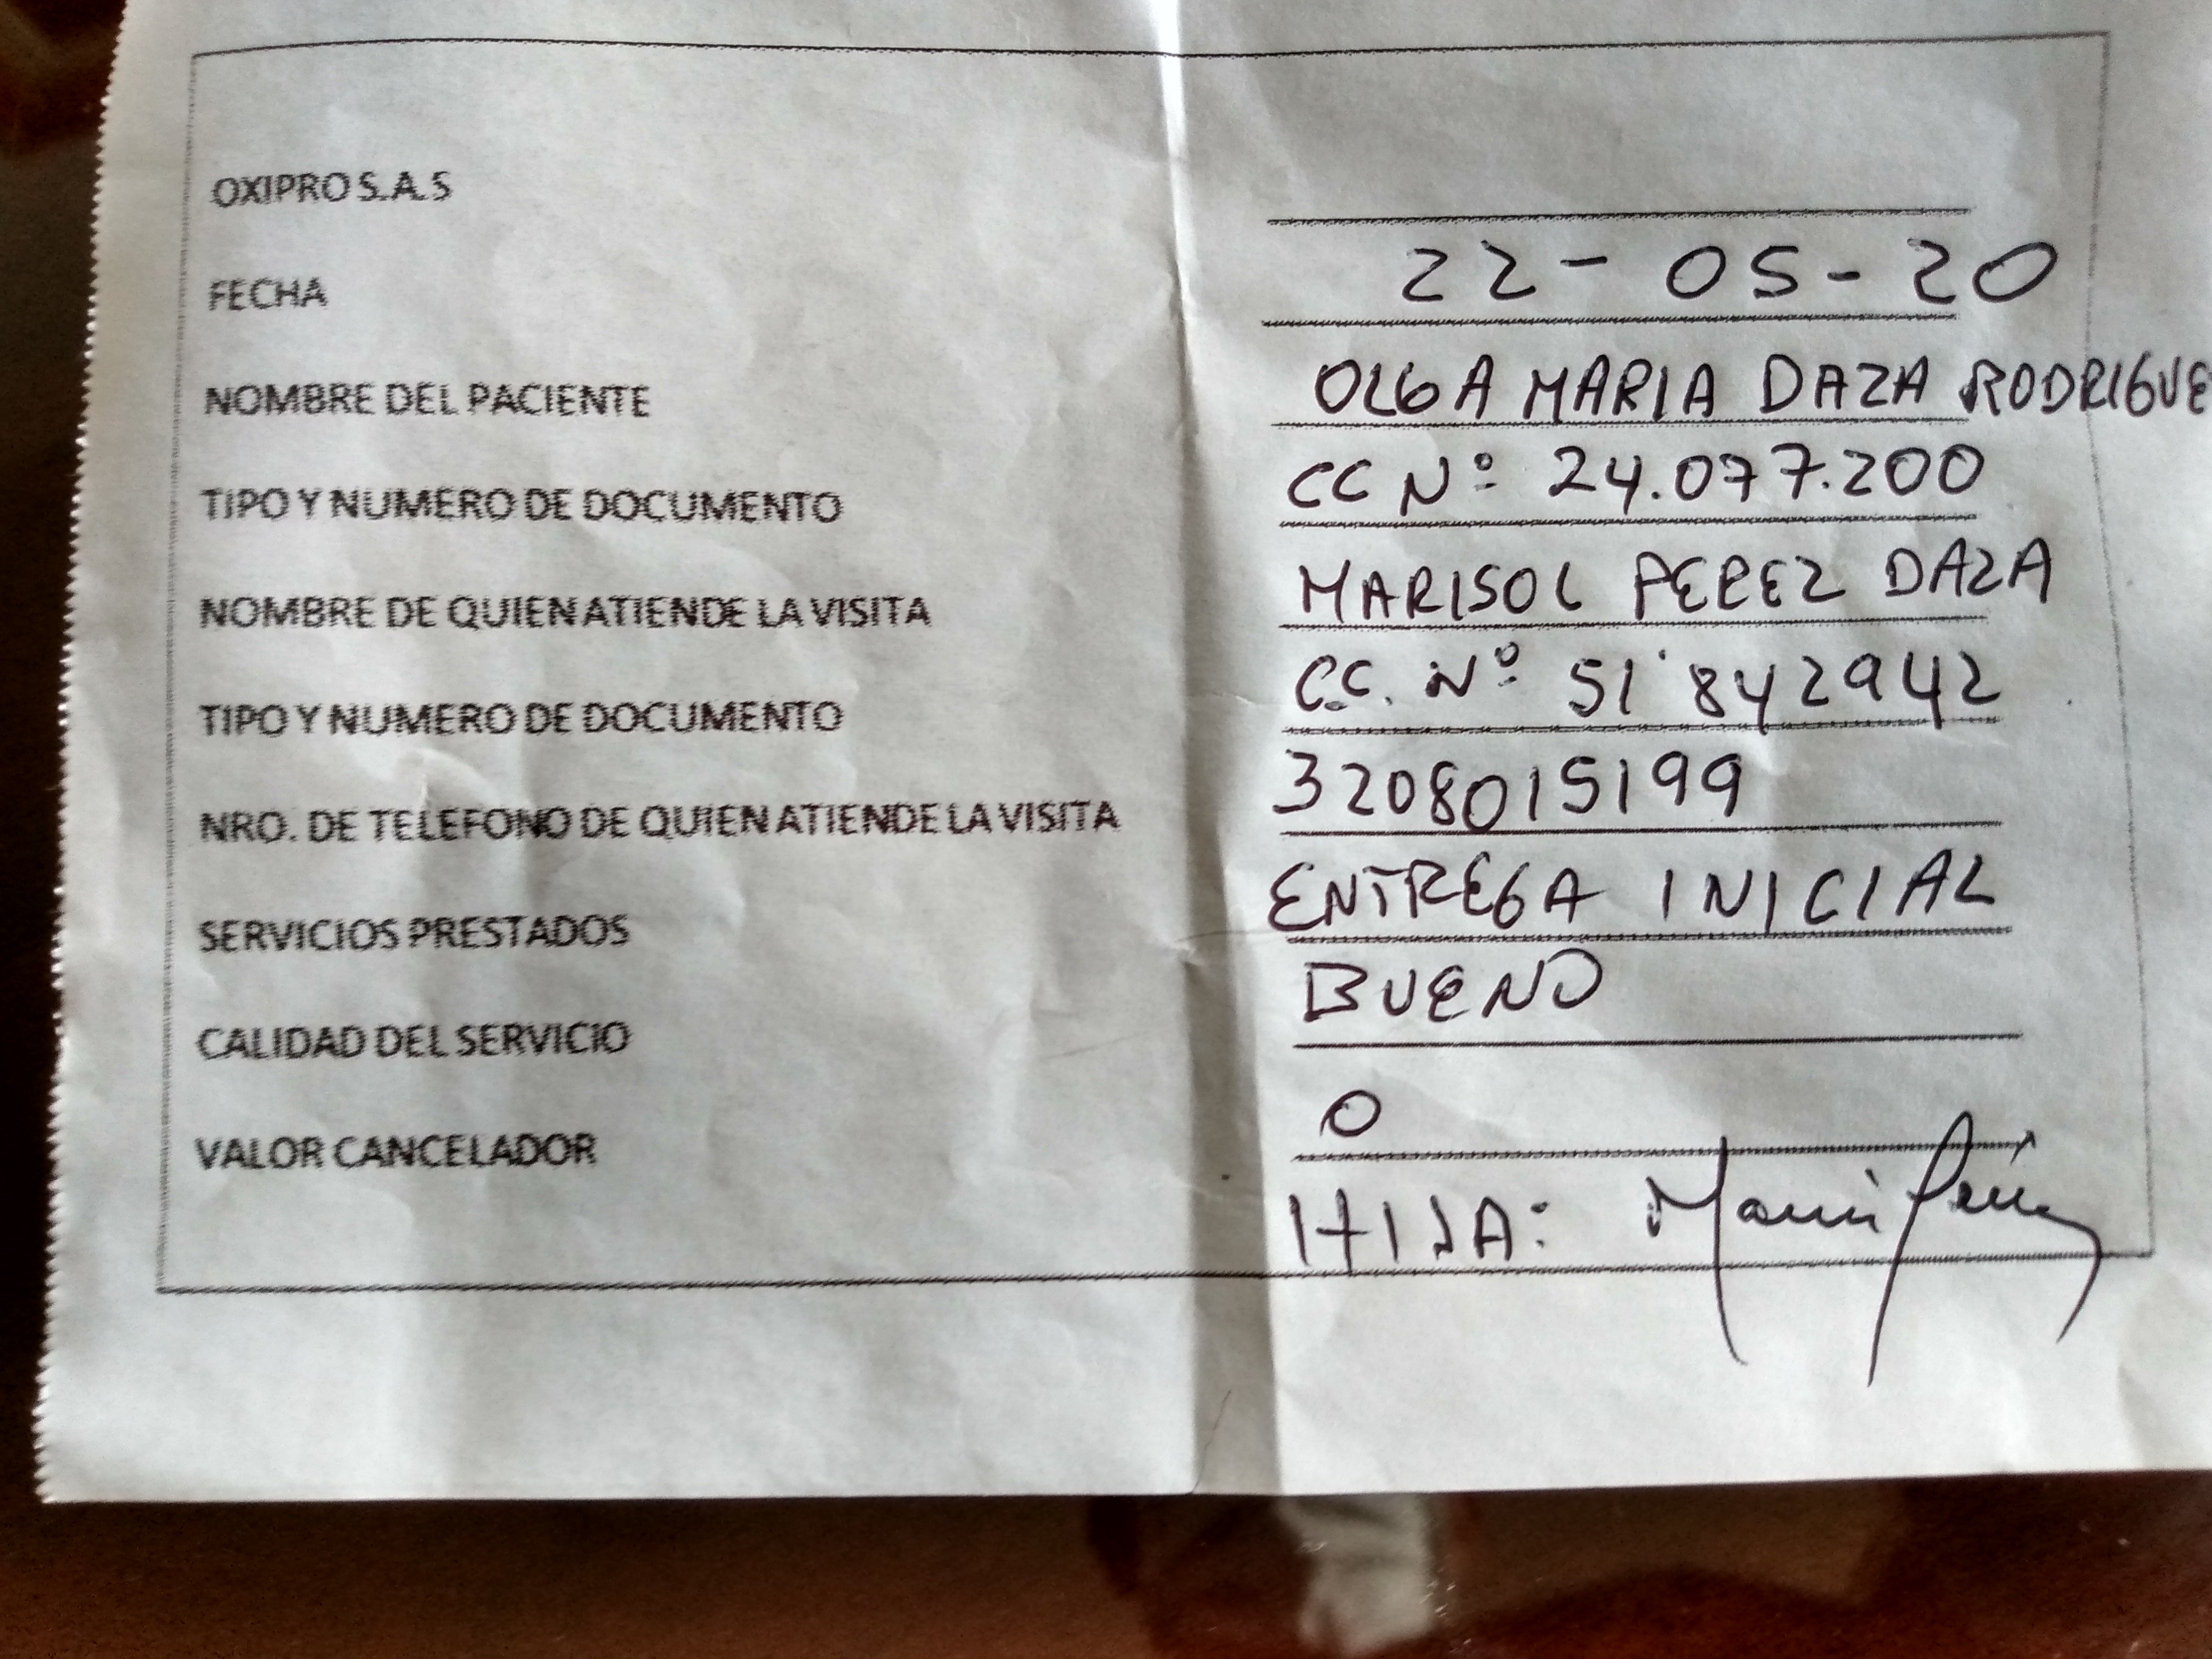 OXIPRO S.A.S
FECHA 22-05-20
NOMBRE DEL PACIENTE OLGA MARIA DAZA RODRIGUE
TIPO Y NUMERO DE DOCUMENTO CC Nº 24.077.200
NOMBRE DE QUIEN ATIENDE LA VISITA MARISOL PEREZ DAZA
TIPO Y NUMERO DE DOCUMENTO C.C. Nº 51'842942
NRO. DE TELEFONO DE QUIEN ATIENDE LA VISITA 3208015199
SERVICIOS PRESTADOS ENTREGA INICIAL
CALIDAD DEL SERVICIO BUENO
VALOR CANCELADOR 0
HIJA: